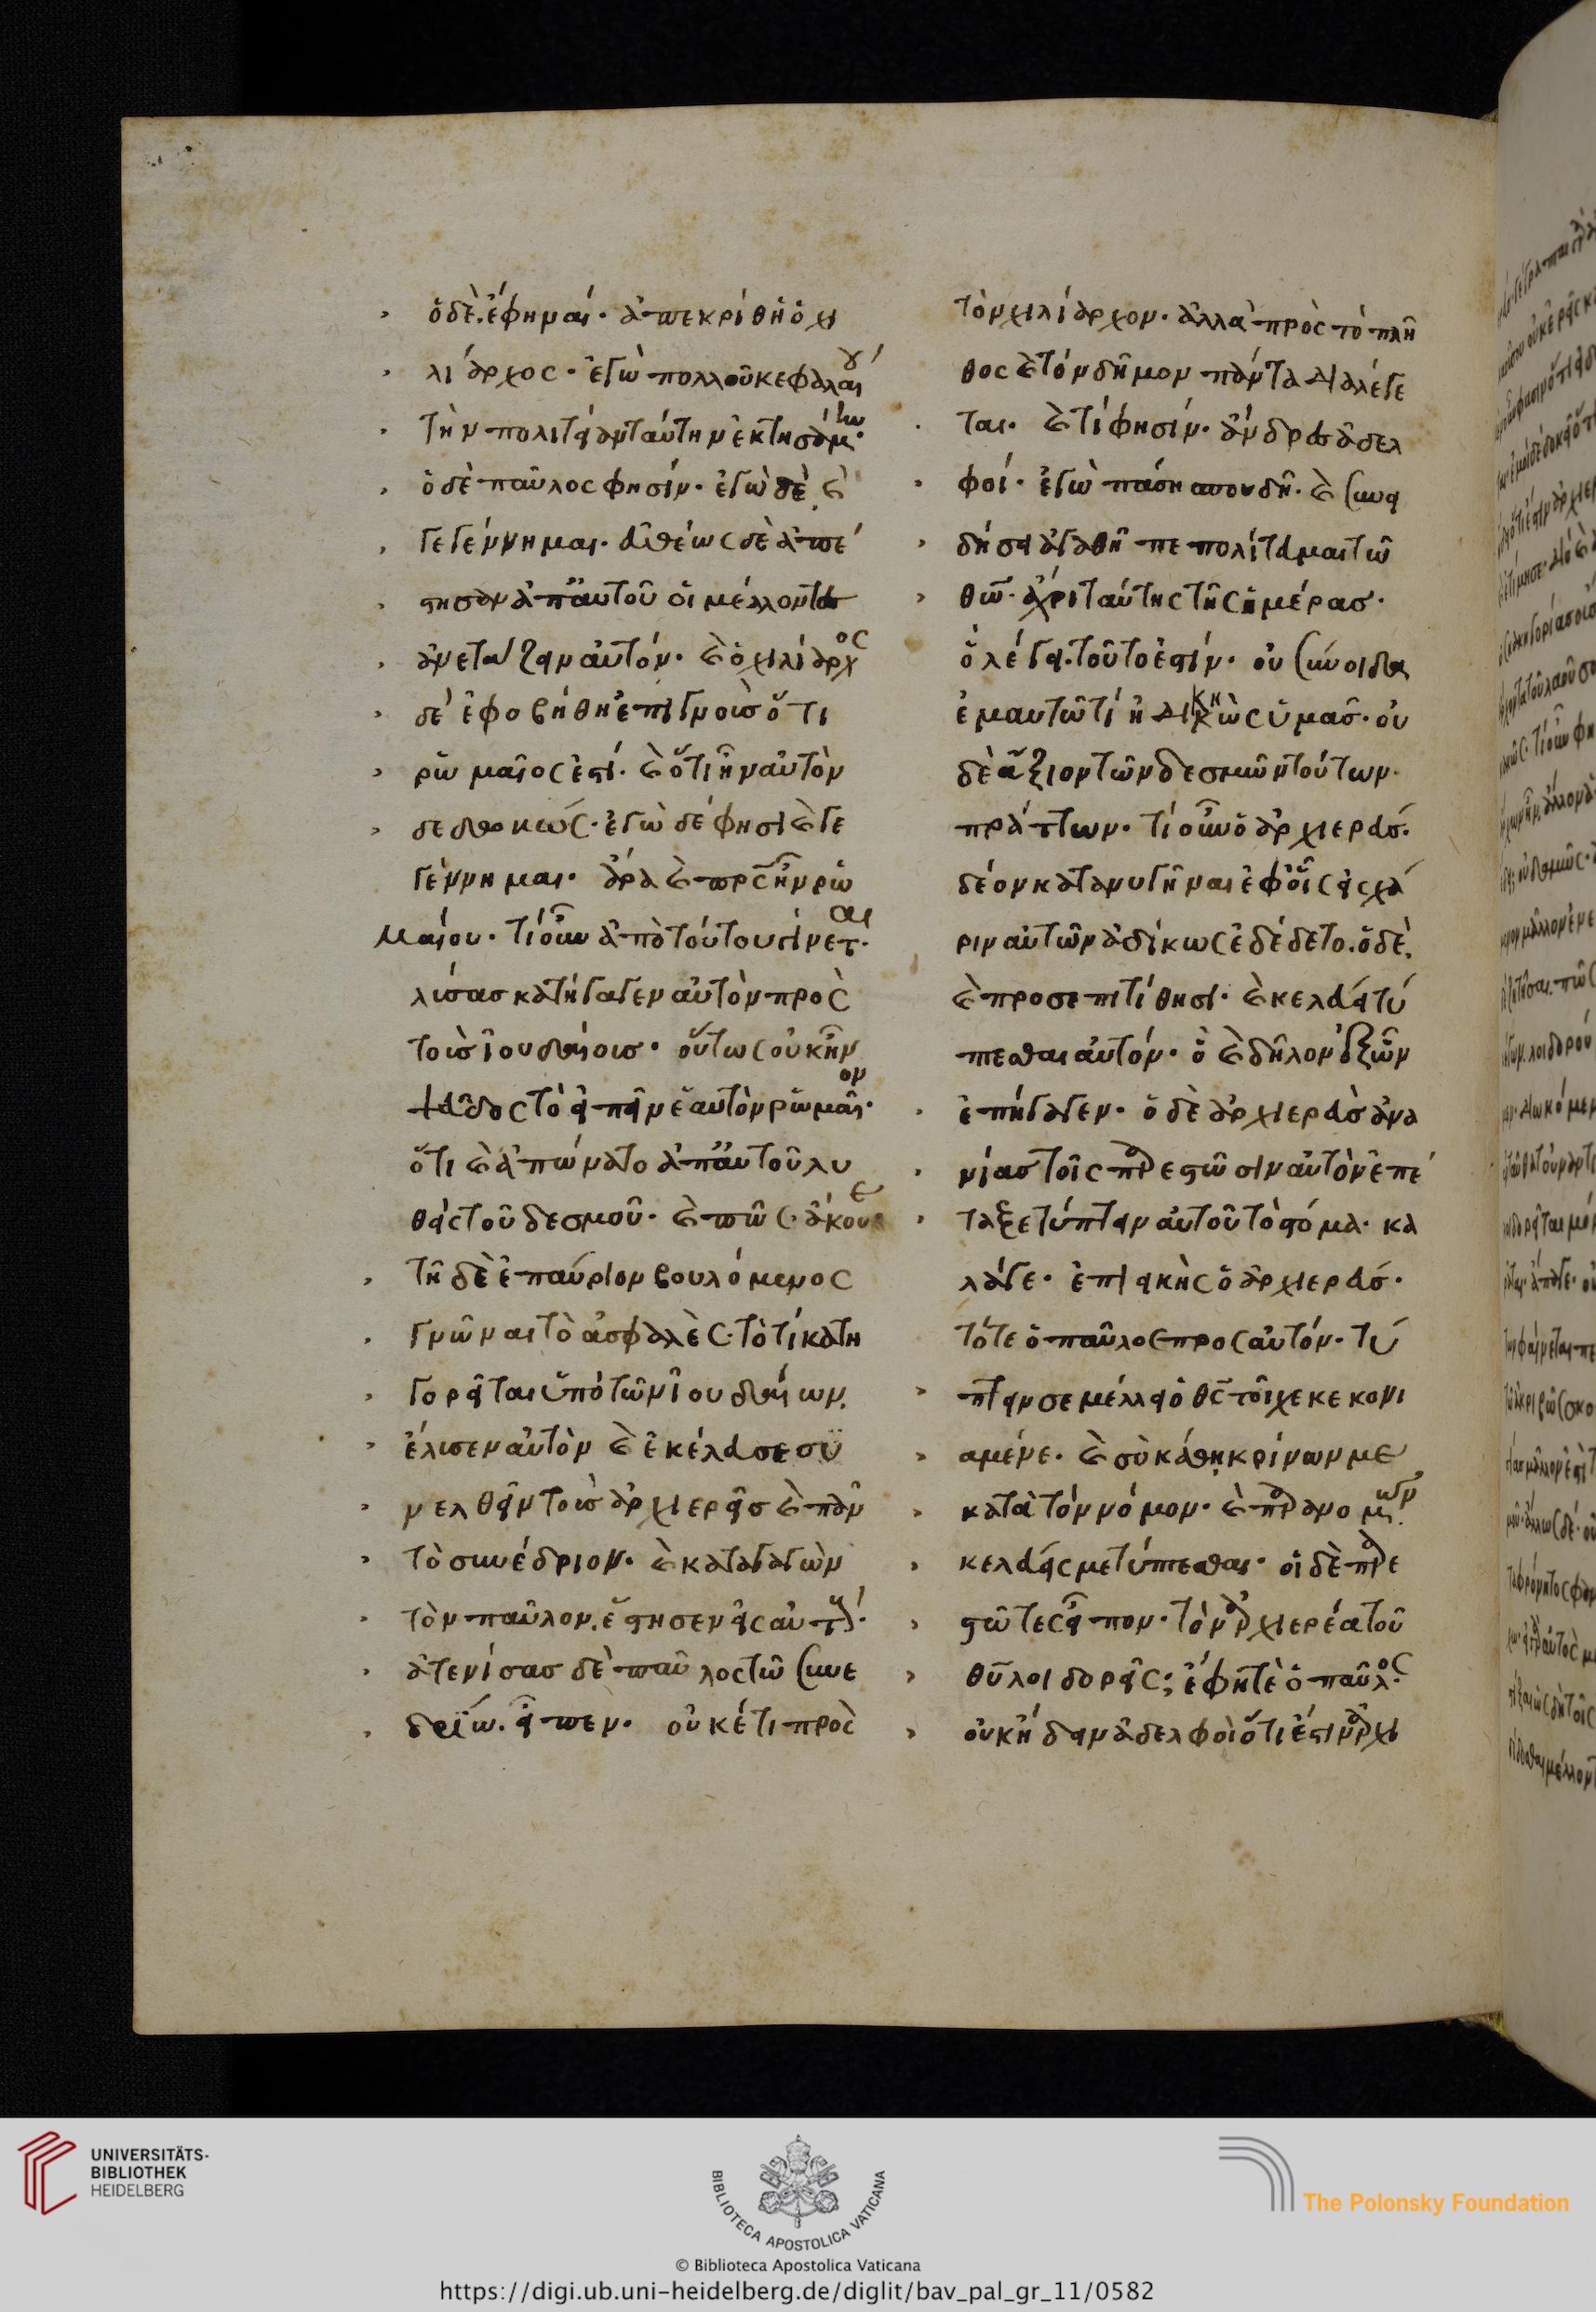 ὁ δὲ ἔφη ναί· ἀπεκρίθη ὁ χι
λίαρχος· ἐγὼ πολλοῦ κεφαλαίου
τὴν πολιτείαν ταύτην ἐκτησάμην·
ὁ δὲ παῦλος φησίν· ἐγὼ δὲ καὶ
γεγέννημαι· εὐθέως δὲ ἀπέ
στησαν ἀπ' αὐτοῦ οἱ μέλλοντες
ἀνετάζειν αὐτόν· καὶ ὁ χιλίαρχος
δὲ ἐφοβήθη ἐπιγνοὺς ὅτι
ῥωμαῖος ἐστί· καὶ ὅτι ἦν αὐτὸν
δεδεκώς· ἐγὼ δέ φησι καὶ γε
γέννημαι· ἄρα καὶ πρς ἦν ῥω
μαίου· τί οὖν ἀπὸ τούτου γίνεται·
λύσας κατήγαγεν αὐτὸν πρὸς
τοὺς ἰουδαίους· οὕτως οὐκ ἦν
ψεῦδος τὸ εἰπεῖν ἑαυτὸν ῥωμαῖον·
ὅτι καὶ ἀπώνατο ἀπ' αὐτοῦ λυ
θεὶς τοῦ δεσμοῦ· καὶ πῶς· ἄκουε
τῇ δὲ ἐπαύριον βουλόμενος
γνῶναι τὸ ἀσφαλὲς· τὸ τί κατη
γορεῖται ὑπὸ τῶν ἰουδαίων.
ἔλυσεν αὐτὸν καὶ ἐκέλευσε συ
νελθεῖν τοὺς ἀρχιερεῖς καὶ πᾶν
τὸ συνέδριον· καὶ καταγαγὼν
τὸν παῦλον. ἔστησεν εἰς αὐτούς·
ἀτενίσας δὲ παῦλος τῷ συνε
δρίῳ. εἶπεν· οὐκέτι πρὸς
τὸν χιλίαρχον· ἀλλὰ πρὸς τὸ πλῆ
θος καὶ τὸν δῆμον πάντα διαλέγε
ται· καὶ τί φησίν· ἄνδρες ἀδελ
φοί· ἐγὼ πάσῃ σπουδῇ· καὶ συνει
δήσει ἀγαθῇ πεπολίτευμαι τῷ
θω· ἄχρι ταύτης τῆς ἡμέρας·
ὃ λέγει· τοῦτο ἐστίν· οὐ σύνοιδα
ἐμαυτῷ τί ἠδικηκὼς ὑμᾶς· οὐ
δὲ ἄξιον τῶν δεσμῶν τούτων·
πράττων· τί οὖν ὁ ἀρχιερεύς·
δέον κατανυγῆναι ἐφ' οἷς εἰς χά
ριν αὐτῶν ἀδίκως ἐδέδετο. ὁ δὲ.
καὶ προσεπιτίθησι· καὶ κελεύει τύ
πτεσθαι αὐτόν· ὃ καὶ δῆλον ἐξ ὧν
ἐπήγαγεν· ὁ δὲ ἀρχιερεὺς ἀνα
νίας τοῖς παρεστῶσιν αὐτὸν ἐπέ
ταξε τύπτειν αὐτοῦ τὸ στόμα· κα
λά γε· ἐπιεικὴς ὁ ἀρχιερεύς·
τότε ὁ παῦλος προς αὐτόν· τύ
πτειν σε μέλλει ὁ θς τοῖχε κεκονι
αμένε· καὶ σὺ κάθῃ κρίνων με
κατὰ τὸν νόμον· καὶ παρανομῶν
κελεύεις με τύπτεσθαι· οἱ δὲ παρε
στῶτες εἶπον· τὸν ἀρχιερέα τοῦ
θυ λοιδορεῖς; ἔφη τὲ ὁ παῦλος·
οὐκ ᾔδειν ἀδελφοὶ ὅτι ἐστὶν ἀρχι
UNIVERSITÄTS-
BIBLIOTHEK
HEIDELBERG
BIBLIOTECA APOSTOLICA VATICANA
The Polonsky Foundation
© Biblioteca Apostolica Vaticana
https://digi.ub.uni-heidelberg.de/diglit/bav_pal_gr_11/0582